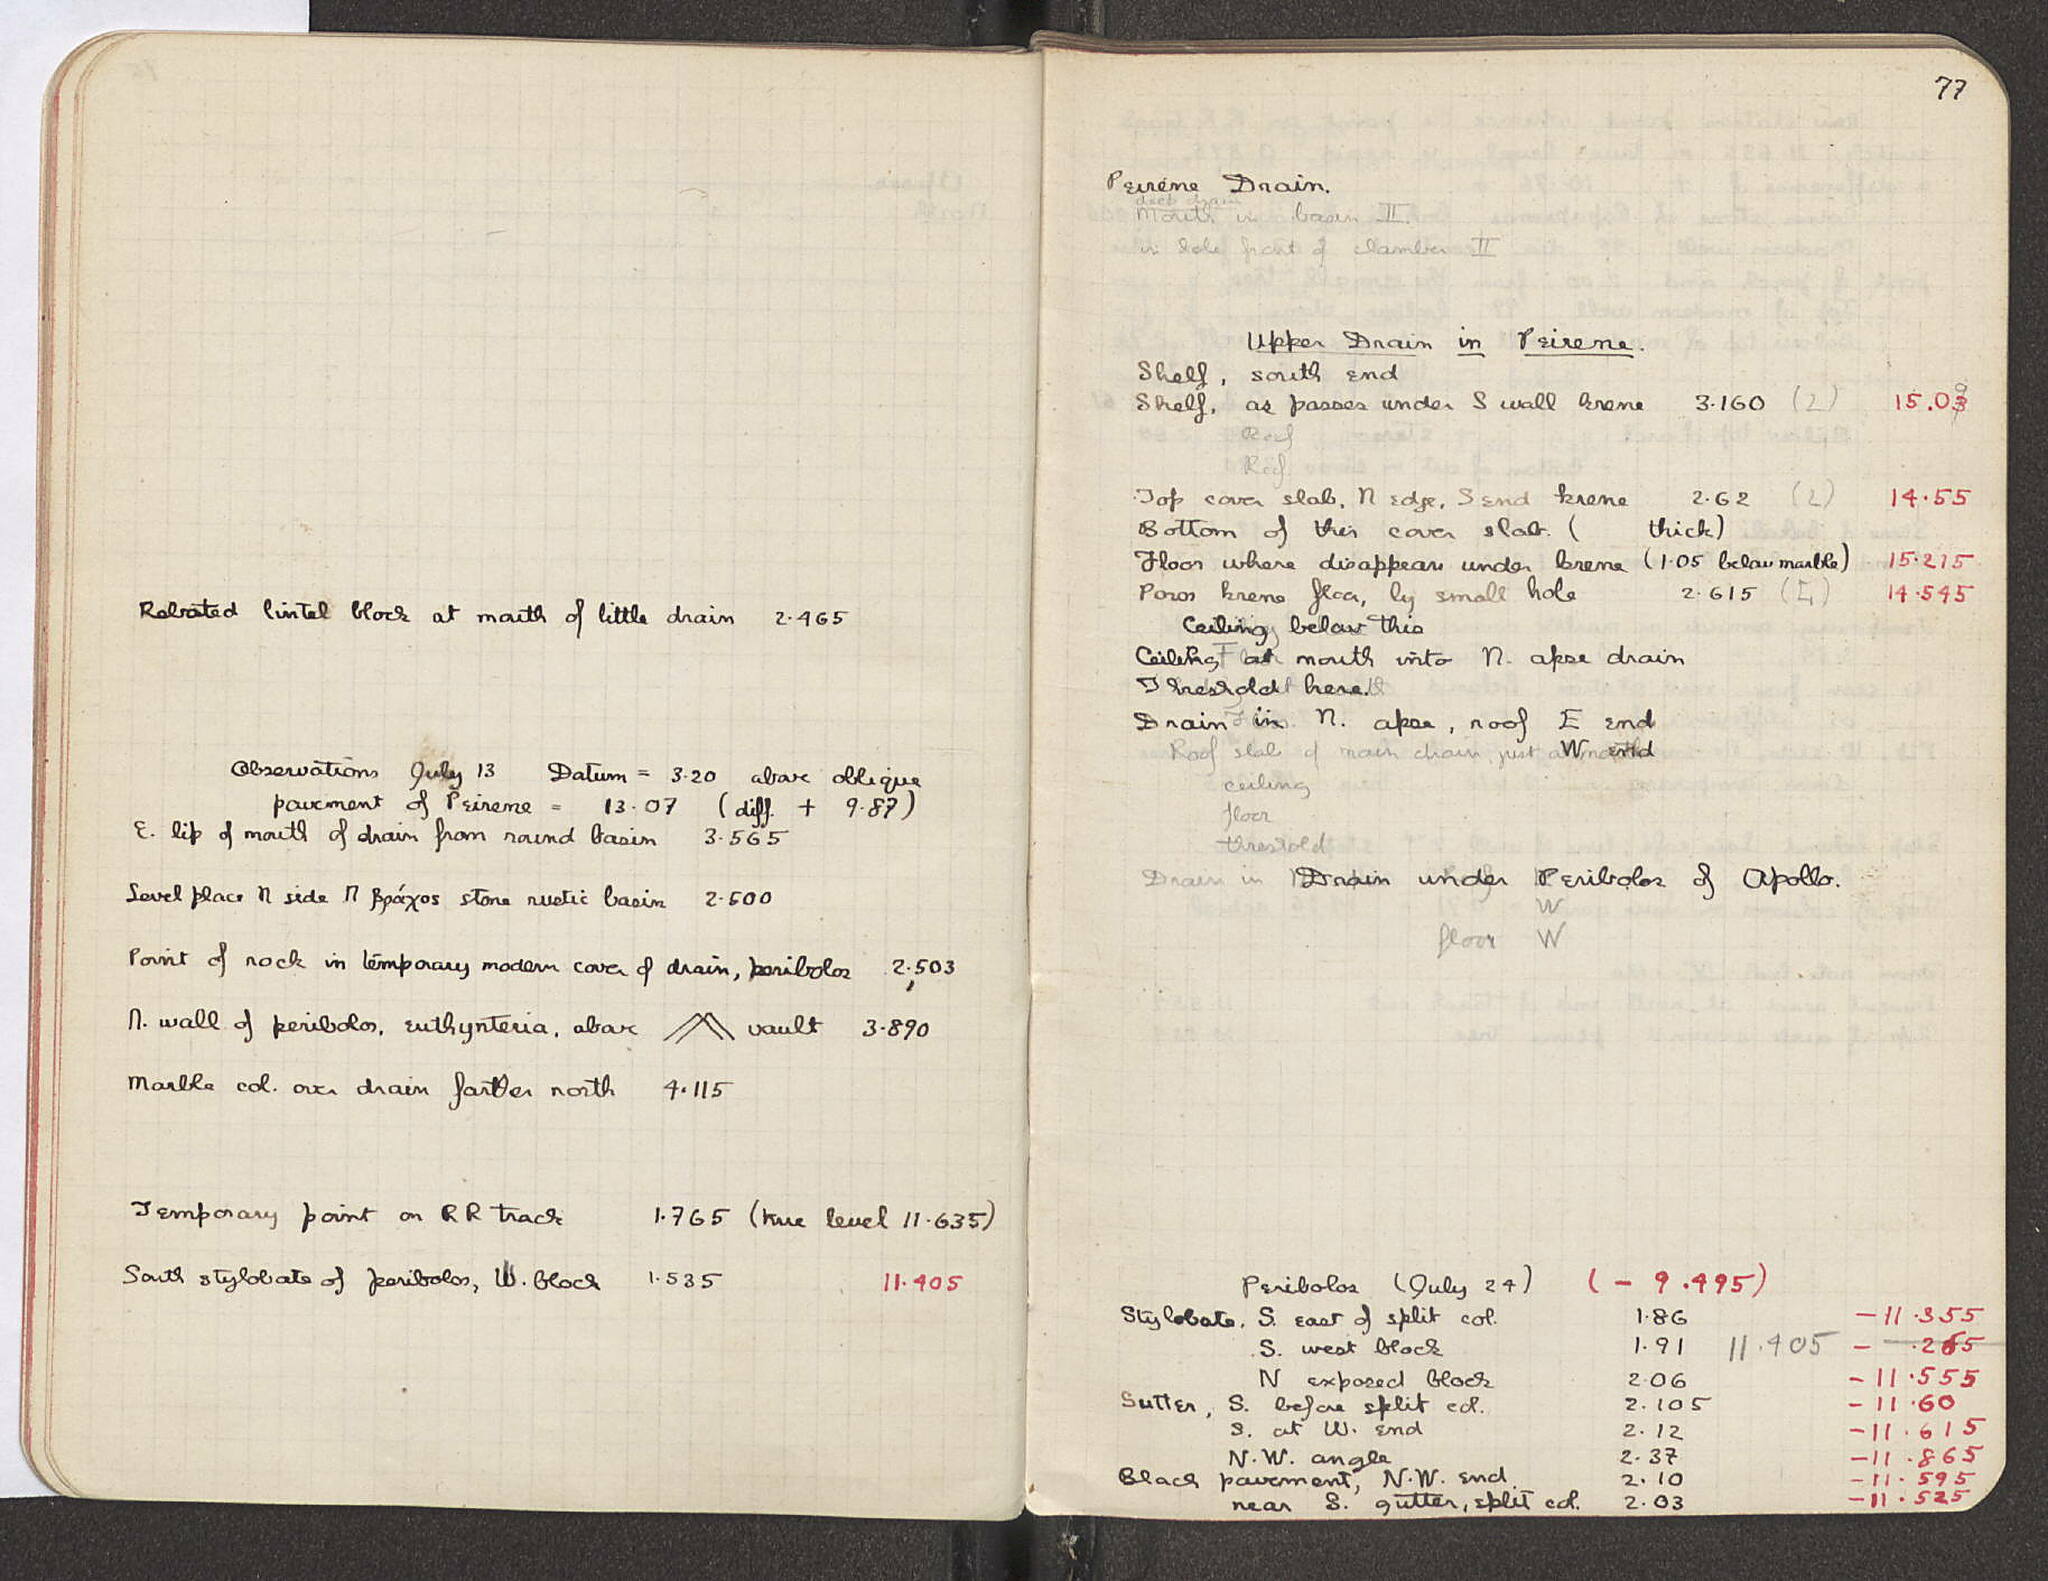 Rebated lintel block at mouth of little drain 2.465
Observations July 13 Datum = 3.20 above oblique
pavement of Peirene = 13.07 (diff. + 9.87)
E. lip of mouth of drain from round basin 3.565
Level place N side Π βράχος stone rustic basin 2.500
Point of rock in temporary modern cover of drain, peribolos 2.503
N. wall of peribolos, euthynteria, above vault 3.890
Marble col. over drain farther north 4.115
Temporary point on RR track 1.765 (true level 11.635)
South stylobate of peribolos, W. block 1.535 11.405
77
Peirene Drain.
deep drain
Mouth in basin II.
in hole front of chamber II
Upper Drain in Peirene.
Shelf, south end
Shelf, as passes under S wall krene 3.160 (2) 15.03
Roof
Roof
Top cover slab, N edge, S end krene 2.62 (2) 14.55
Bottom of this cover slab. ( thick)
Floor where disappears under krene (1.05 below marble) 15.215
Poros krene floor, by small hole 2.615 14.545
Ceiling below this
Ceiling at mouth into N. apse drain
Threshold here.
Drain in N. apse, roof E end
Roof slab of main drain, just at mouth W end
ceiling
floor
threshold
Drain in Drain under Peribolos of Apollo.
W
floor W
Peribolos (July 24) (- 9.495)
Stylobate, S. east of split col. 1.86 -11.355
S. west block 1.91 11.405 - .265
N exposed block 2.06 -11.555
Gutter, S. before split col. 2.105 -11.60
S. at W. end 2.12 -11.615
N.W. angle 2.37 -11.865
Black pavement, N.W. end 2.10 -11.595
near S. gutter, split col. 2.03 -11.525